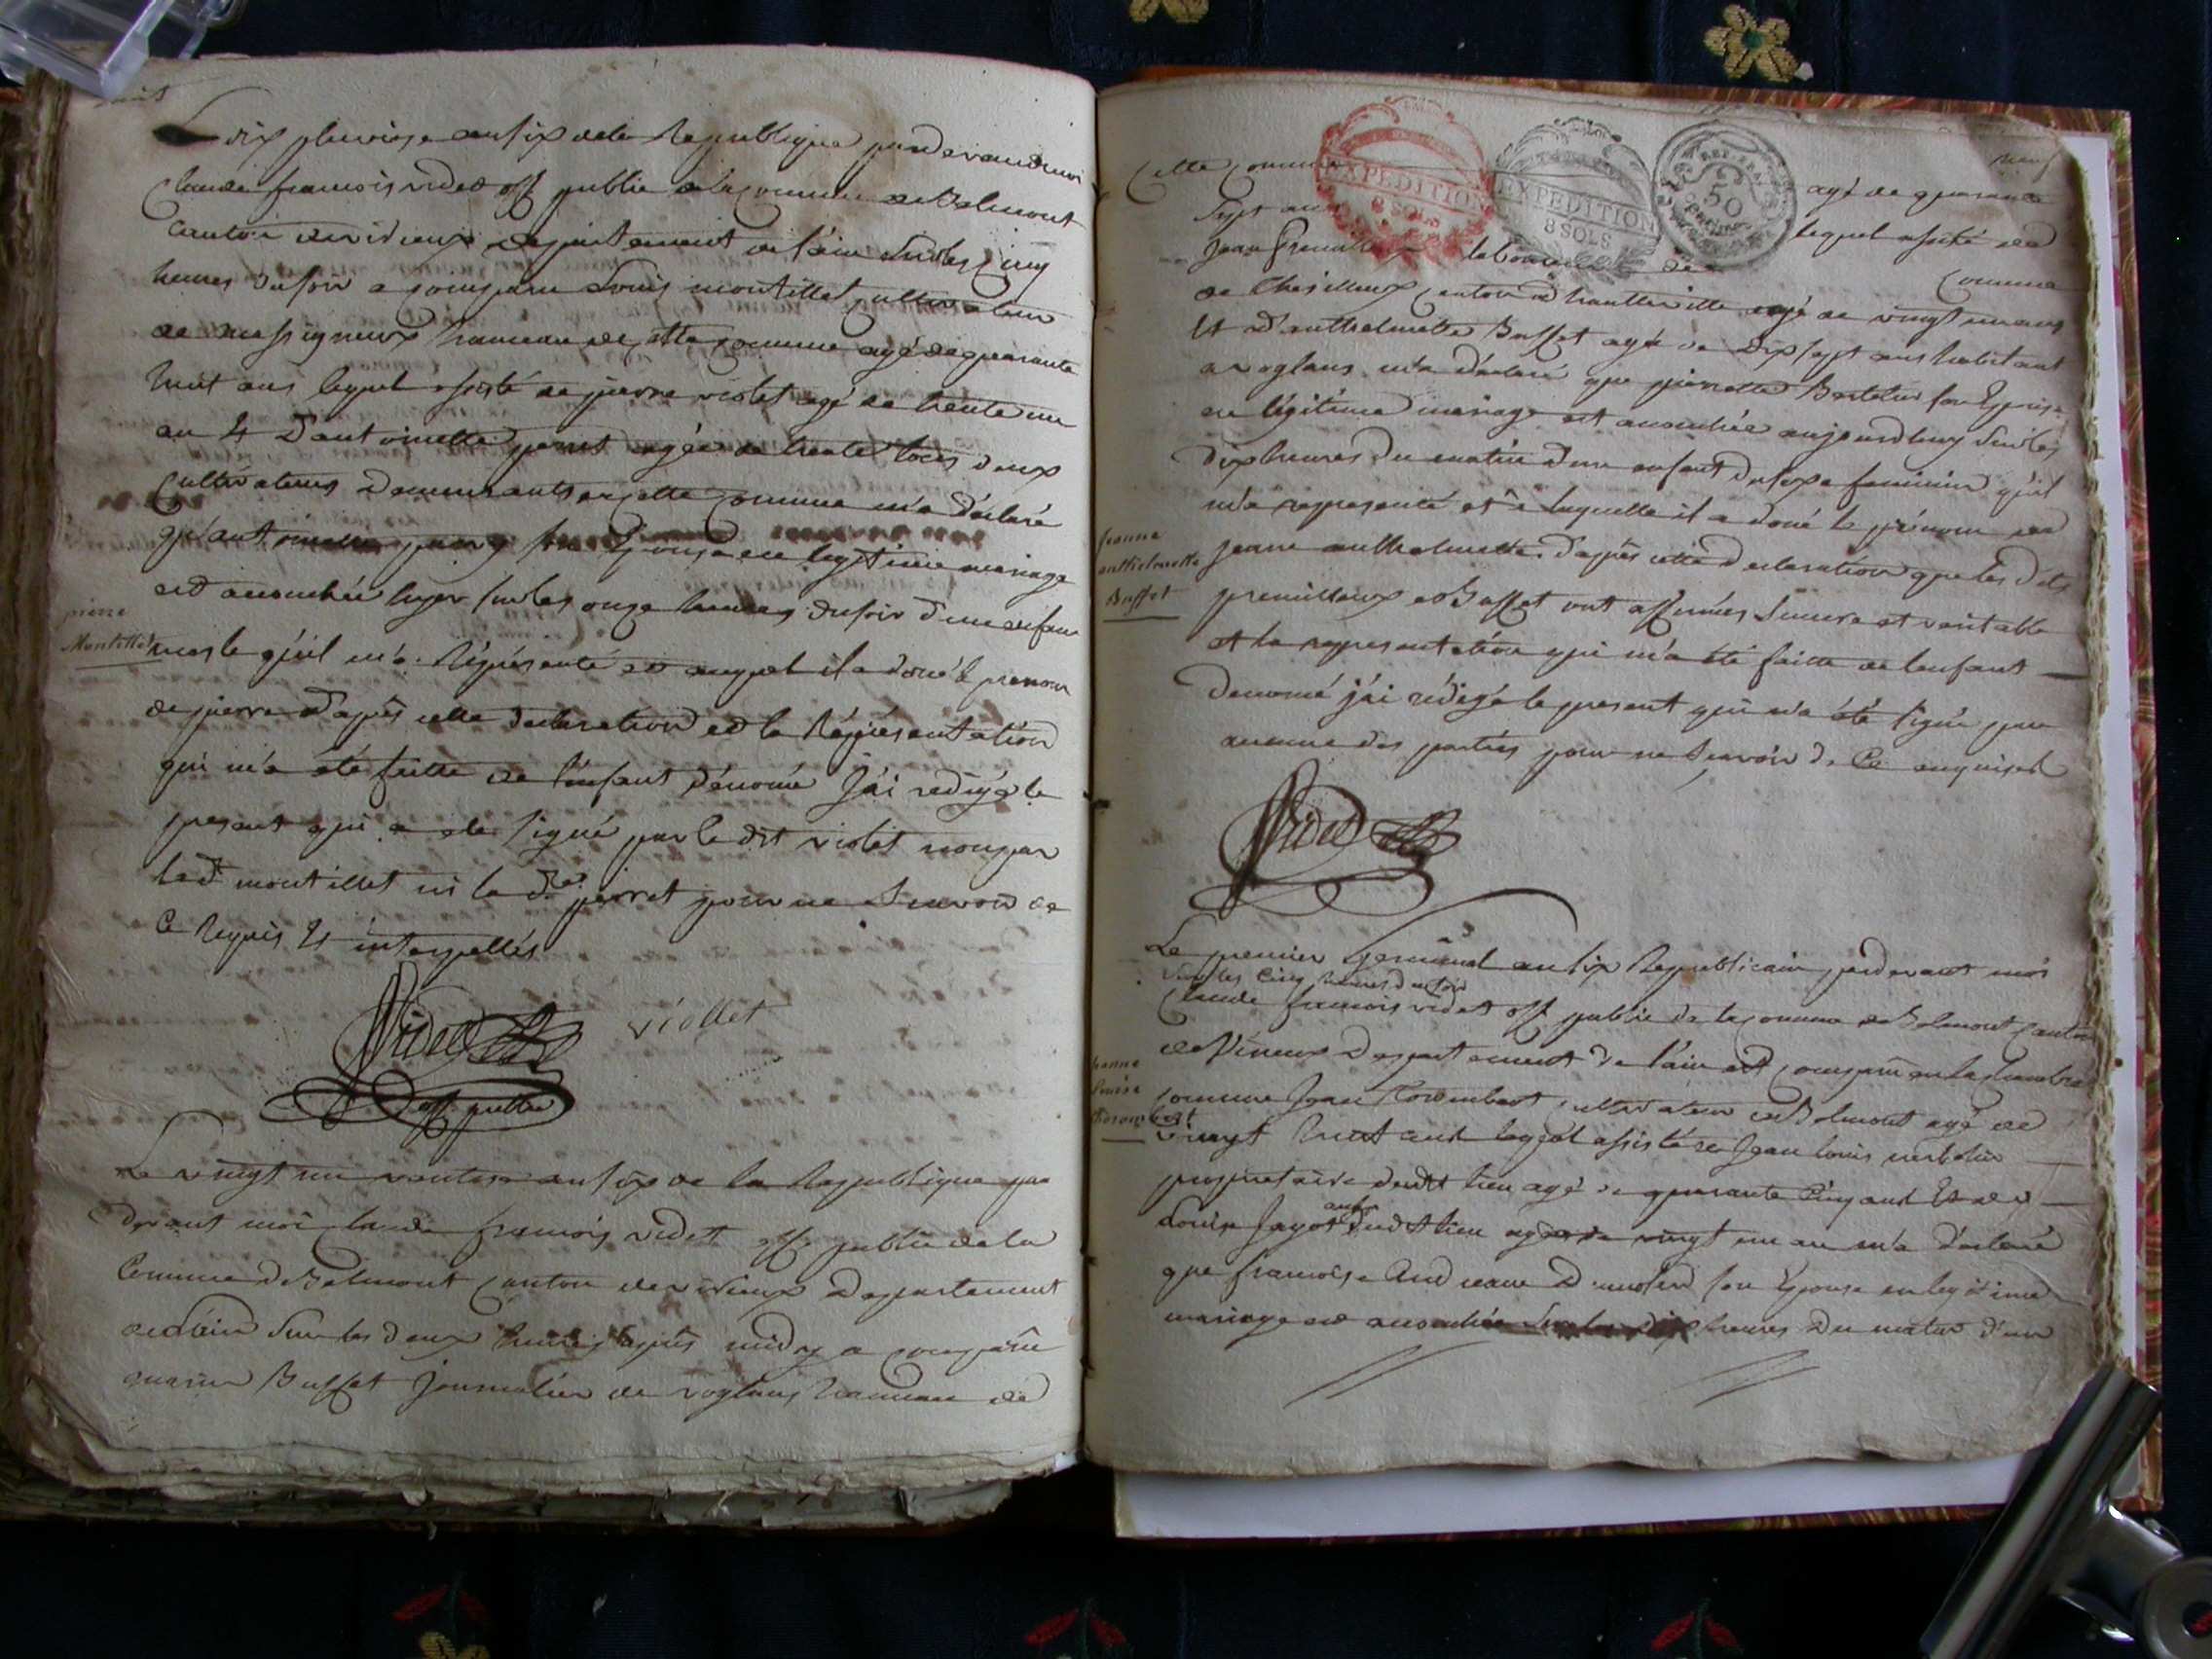 huit
Le dix pluviose an six de la Republique pardevant moi
Claude francois videt off publie de la commune de Belmont
canton de virieux departement de l'ain sur les cinq
heures du soir a comparu Louis montillet cultivateur
de massigneux hameau de cette commune agé de quarante
huit ans lequel assisté de pierre violet agé de trente un
an et d'antoinette perret agée de trente trois deux
cultivateurs demeurants en cette commune m'a déclaré
qu'antoinette son Epouse en legitime mariage
est accouchée hyer sur les onze heures du soir d'un enfant
pierre
Montillet
masle qu'il m'a Réprésenté et auquel il a doné le prenom
de pierre d'après cette declaration et la Réprésentation
qui m'a été faitte de l'enfant dénomé J'ai redigé le
present qui a été signé par le dit violet non par
led montillet ni la de perret pour ne sçavoir de
ce Requis et interpellés
Videt
viollet
off publie
Le vingt un ventose an six de la Republique par
devant moi claude francois videt off publie de la
Commune de Belmont canton de virieux Departement
de l'ain sur les deux heures après midy a comparu
Buffet journalier de voglans hameau de
neuf
Cette commune agé de quarante
sept ans lequel assisté de
EXPEDITION
8 SOLS
EXPEDITION
8 SOLS
50
Jean laboureur de Commune
de canton d'hautteville agé de vingt un ans
Et d'anthelmette Buffet agé de dix sept ans habitant
a voglans m'a déclaré que pierrette son Epouse
en légitime mariage est accouchée aujourdhuy sur les
dix heures du matin d'un enfant du sexe feminin qu'il
m'a representé et a laquelle il a doné le prénom de
Jeanne
anthelmette
Buffet
jeanne anthelmette. d'après cette declaration que les dits
et Buffet ont affirmés sincere et veritable
et la representation qui m'a été faitte de l'enfant
denomé j'ai rédigé le present qui n'a été signé par
aucune des parties pour ne sçavoir de ce enquises
Videt
Le premier germinal an six Republicain pardevant moi
sur les cinq heures du soir
Claude francois videt off publie de la commune de Belmont canton
de virieux Departement de l'ain est comparu en la chambre
Jeanne
Louise
commune Jean cultivateur de Belmont agé de
vingt huit ans lequel assisté de Jean louis
proprietaire dudit lieu agé de quarante cinq ans Et de
Louise Jayot dudit lieu agée de vingt un an m'a déclaré
que francoise son Epouse en legitime
mariage est accouchée sur les dix heures du matin d'un